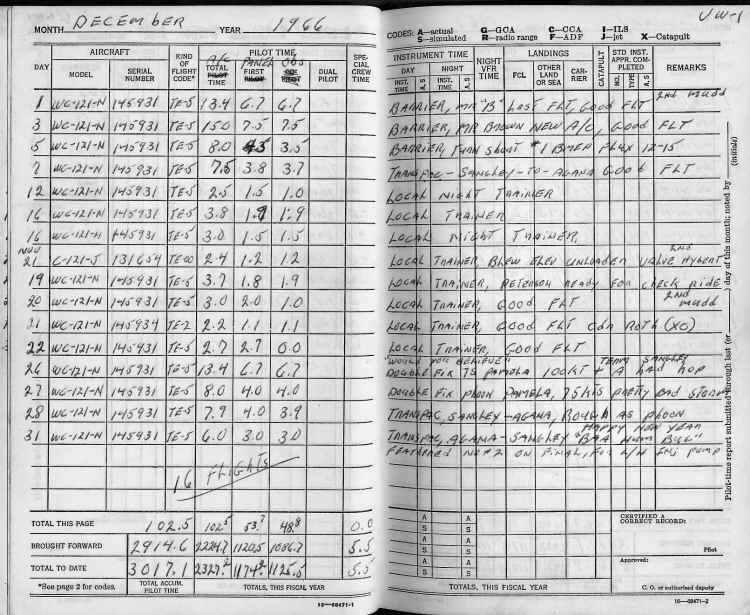 MONTH DECEMBER YEAR 1966
DAY AIRCRAFT KIND OF FLIGHT CODE* PILOT TIME SPECIAL CREW TIME
MODEL SERIAL NUMBER A/C TOTAL PILOT TIME FIRST PILOT DUAL PILOT
1 WC-121-N 145931 TE-5 13.4 6.7 6.7
3 WC-121-N 145931 TE-5 15.0 7.5 7.5
5 WC-121-N 145931 TE-5 8.0 4.5 3.5
7 WC-121-N 145931 TE-5 7.5 3.8 3.7
12 WC-121-N 145931 TE-5 2.5 1.5 1.0
16 WC-121-N 145931 TE-5 3.8 1.9 1.9
16 WC-121-N 145931 TE-5 3.0 1.5 1.5
NOV
21 C-121-J 131654 2.4 1.2 1.2
19 WC-121-N 145931 TE-5 3.7 1.8 1.9
20 WC-121-N 145931 TE-5 3.0 2.0 1.0
21 WC-121-N 145934 TE-2 2.2 1.1 1.1
22 WC-121-N 145931 TE-5 2.7 2.7 0.0
26 WC-121-N 145931 TE-5 13.4 6.7 6.7
27 WC-121-N 145931 TE-5 8.0 4.0 4.0
28 WC-121-N 145931 TE-5 7.9 4.0 3.9
31 WC-121-N 145931 TE-5 6.0 3.0 3.0
16 FLIGHTS
TOTAL THIS PAGE 102.5 102.5 53.7 48.8 0.0
BROUGHT FORWARD 2914.6 1120.5 5.5
TOTAL TO DATE 3017.1 2327.2 1174.2 1125.5 5.5
*See page 2 for codes. TOTAL ACCUM. PILOT TIME TOTALS, THIS FISCAL YEAR
16—60471-1
VW-1
CODES: A—actual G—GCA C—CCA I—ILS
S—simulated R—radio range F—ADF J—jet X—Catapult
INSTRUMENT TIME NIGHT VFR TIME LANDINGS CATAPULT STD INST. APPR. COMPLETED REMARKS
DAY NIGHT FCL OTHER LAND OR SEA CARRIER NO. TYPE A, S
INST. TIME A, S INST. TIME A, S
BARRIER, MR "B" LAST FLT, GOOD FLT 2nd MADD
BARRIER, MR BROWN NEW A/C, GOOD FLT
BARRIER, TURN SHORT #1 BMEP FLUX 12-15
TRANSPAC-SANGLEY-TO-AGANA GOOD FLT
LOCAL NIGHT TRAINER
LOCAL TRAINER
LOCAL NIGHT TRAINER,
LOCAL TRAINER, BLEW ELEV UNLOADER VALVE 2nd
LOCAL TRAINER, PETERSON READY FOR CHECK RIDE
LOCAL TRAINER, GOOD FLT 2nd MADD
LOCAL TRAINER, GOOD FLT CDR ROTH (XO)
LOCAL TRAINER, GOOD FLT
"WOULD YOU BELIEVE" TEAM SANGLEY
DOUBLE FIX TS PAMELA 100KT + A BAD HOP
DOUBLE FIX PHOON PAMELA, 75KTS PRETTY BAD STORM
TRANSPAC, SANGLEY-AGANA, ROUGH AS PHOON
HAPPY NEW YEAR
TRANSPAC, AGANA-SANGLEY "BAA HUM BUG"
FEATHERED NO #2 ON FINAL, FOR L/H PUMP
A
S
A
S
A
S
A
S
A
S
A
S
CERTIFIED A CORRECT RECORD:
Pilot
Approved:
C. O. or authorized deputy
TOTALS, THIS FISCAL YEAR
16—60471-2
Pilot-time report submitted through last (or day of this month; noted by (Initials)